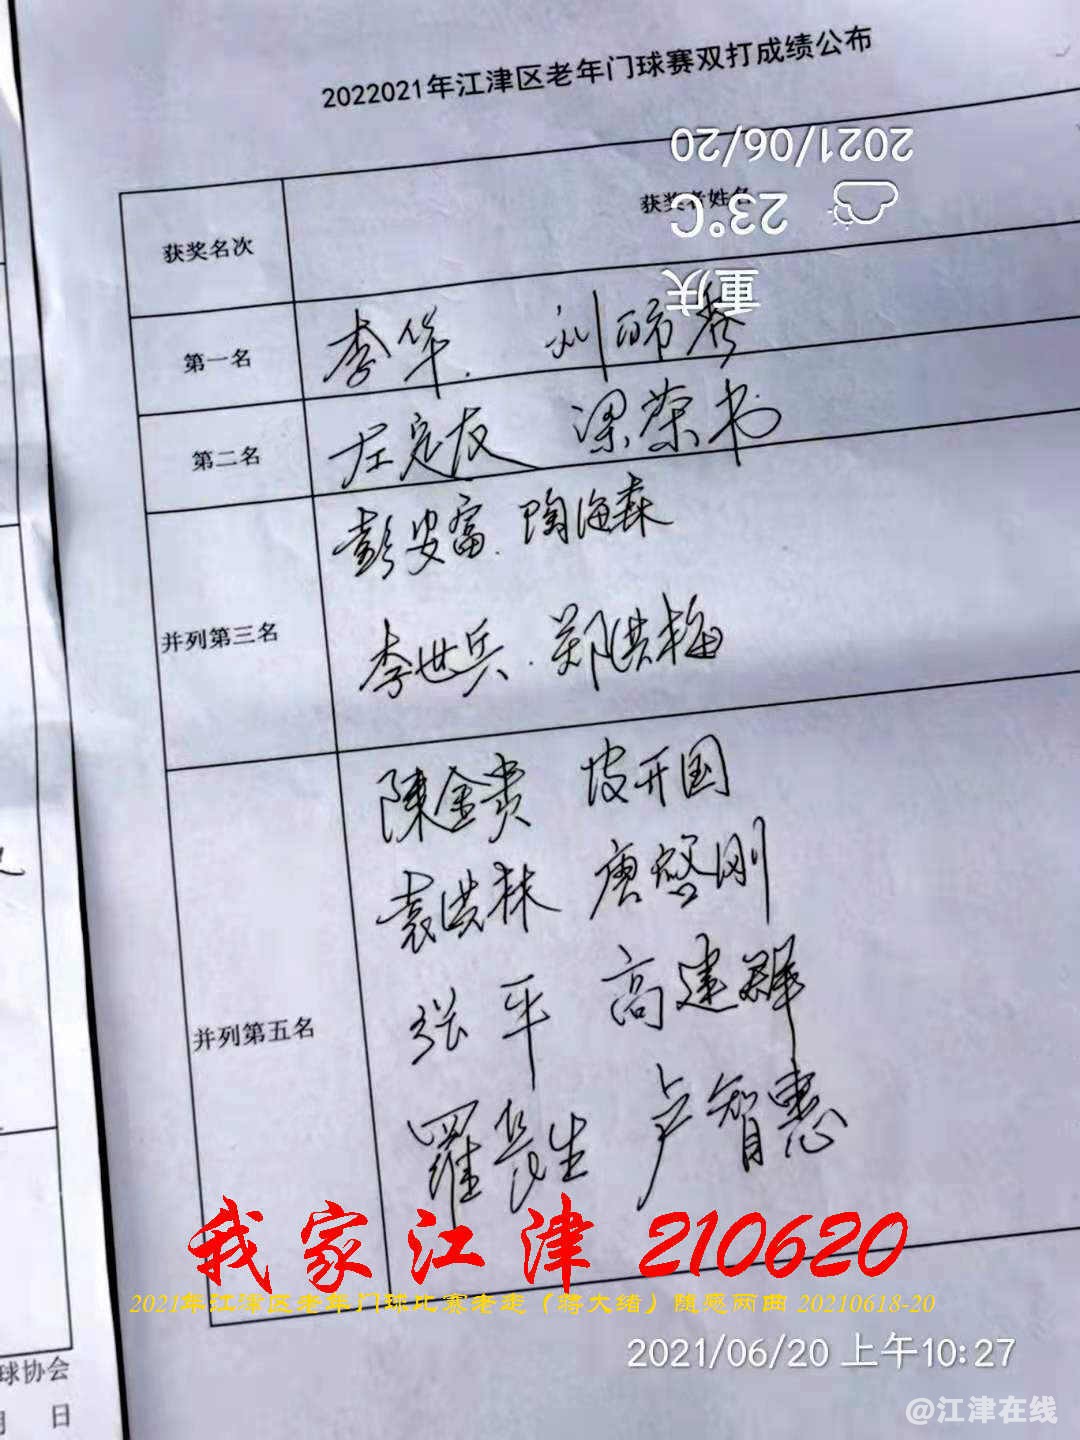 2022021年江津区老年门球赛双打成绩公布
2021/06/20
23°C
重庆
获奖名次 获奖者姓名
第一名 李华. 刘
第二名 左定友 梁荣书
彭安富. 陶海森
并列第三名
李世兵. 郑洪梅
陳金贵 开国
袁洪林 唐 刚
并列第五名
张平 高建群
羅长生 卢智惠
我家江津 210620
2021年江津区老年门球比赛老走（蒋大绪）随感两曲 20210618-20
2021/06/20 上午10:27
球协会
月 日
@江津在线